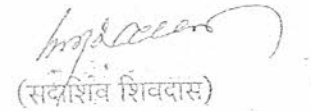 (सदाशिव शिवदास)